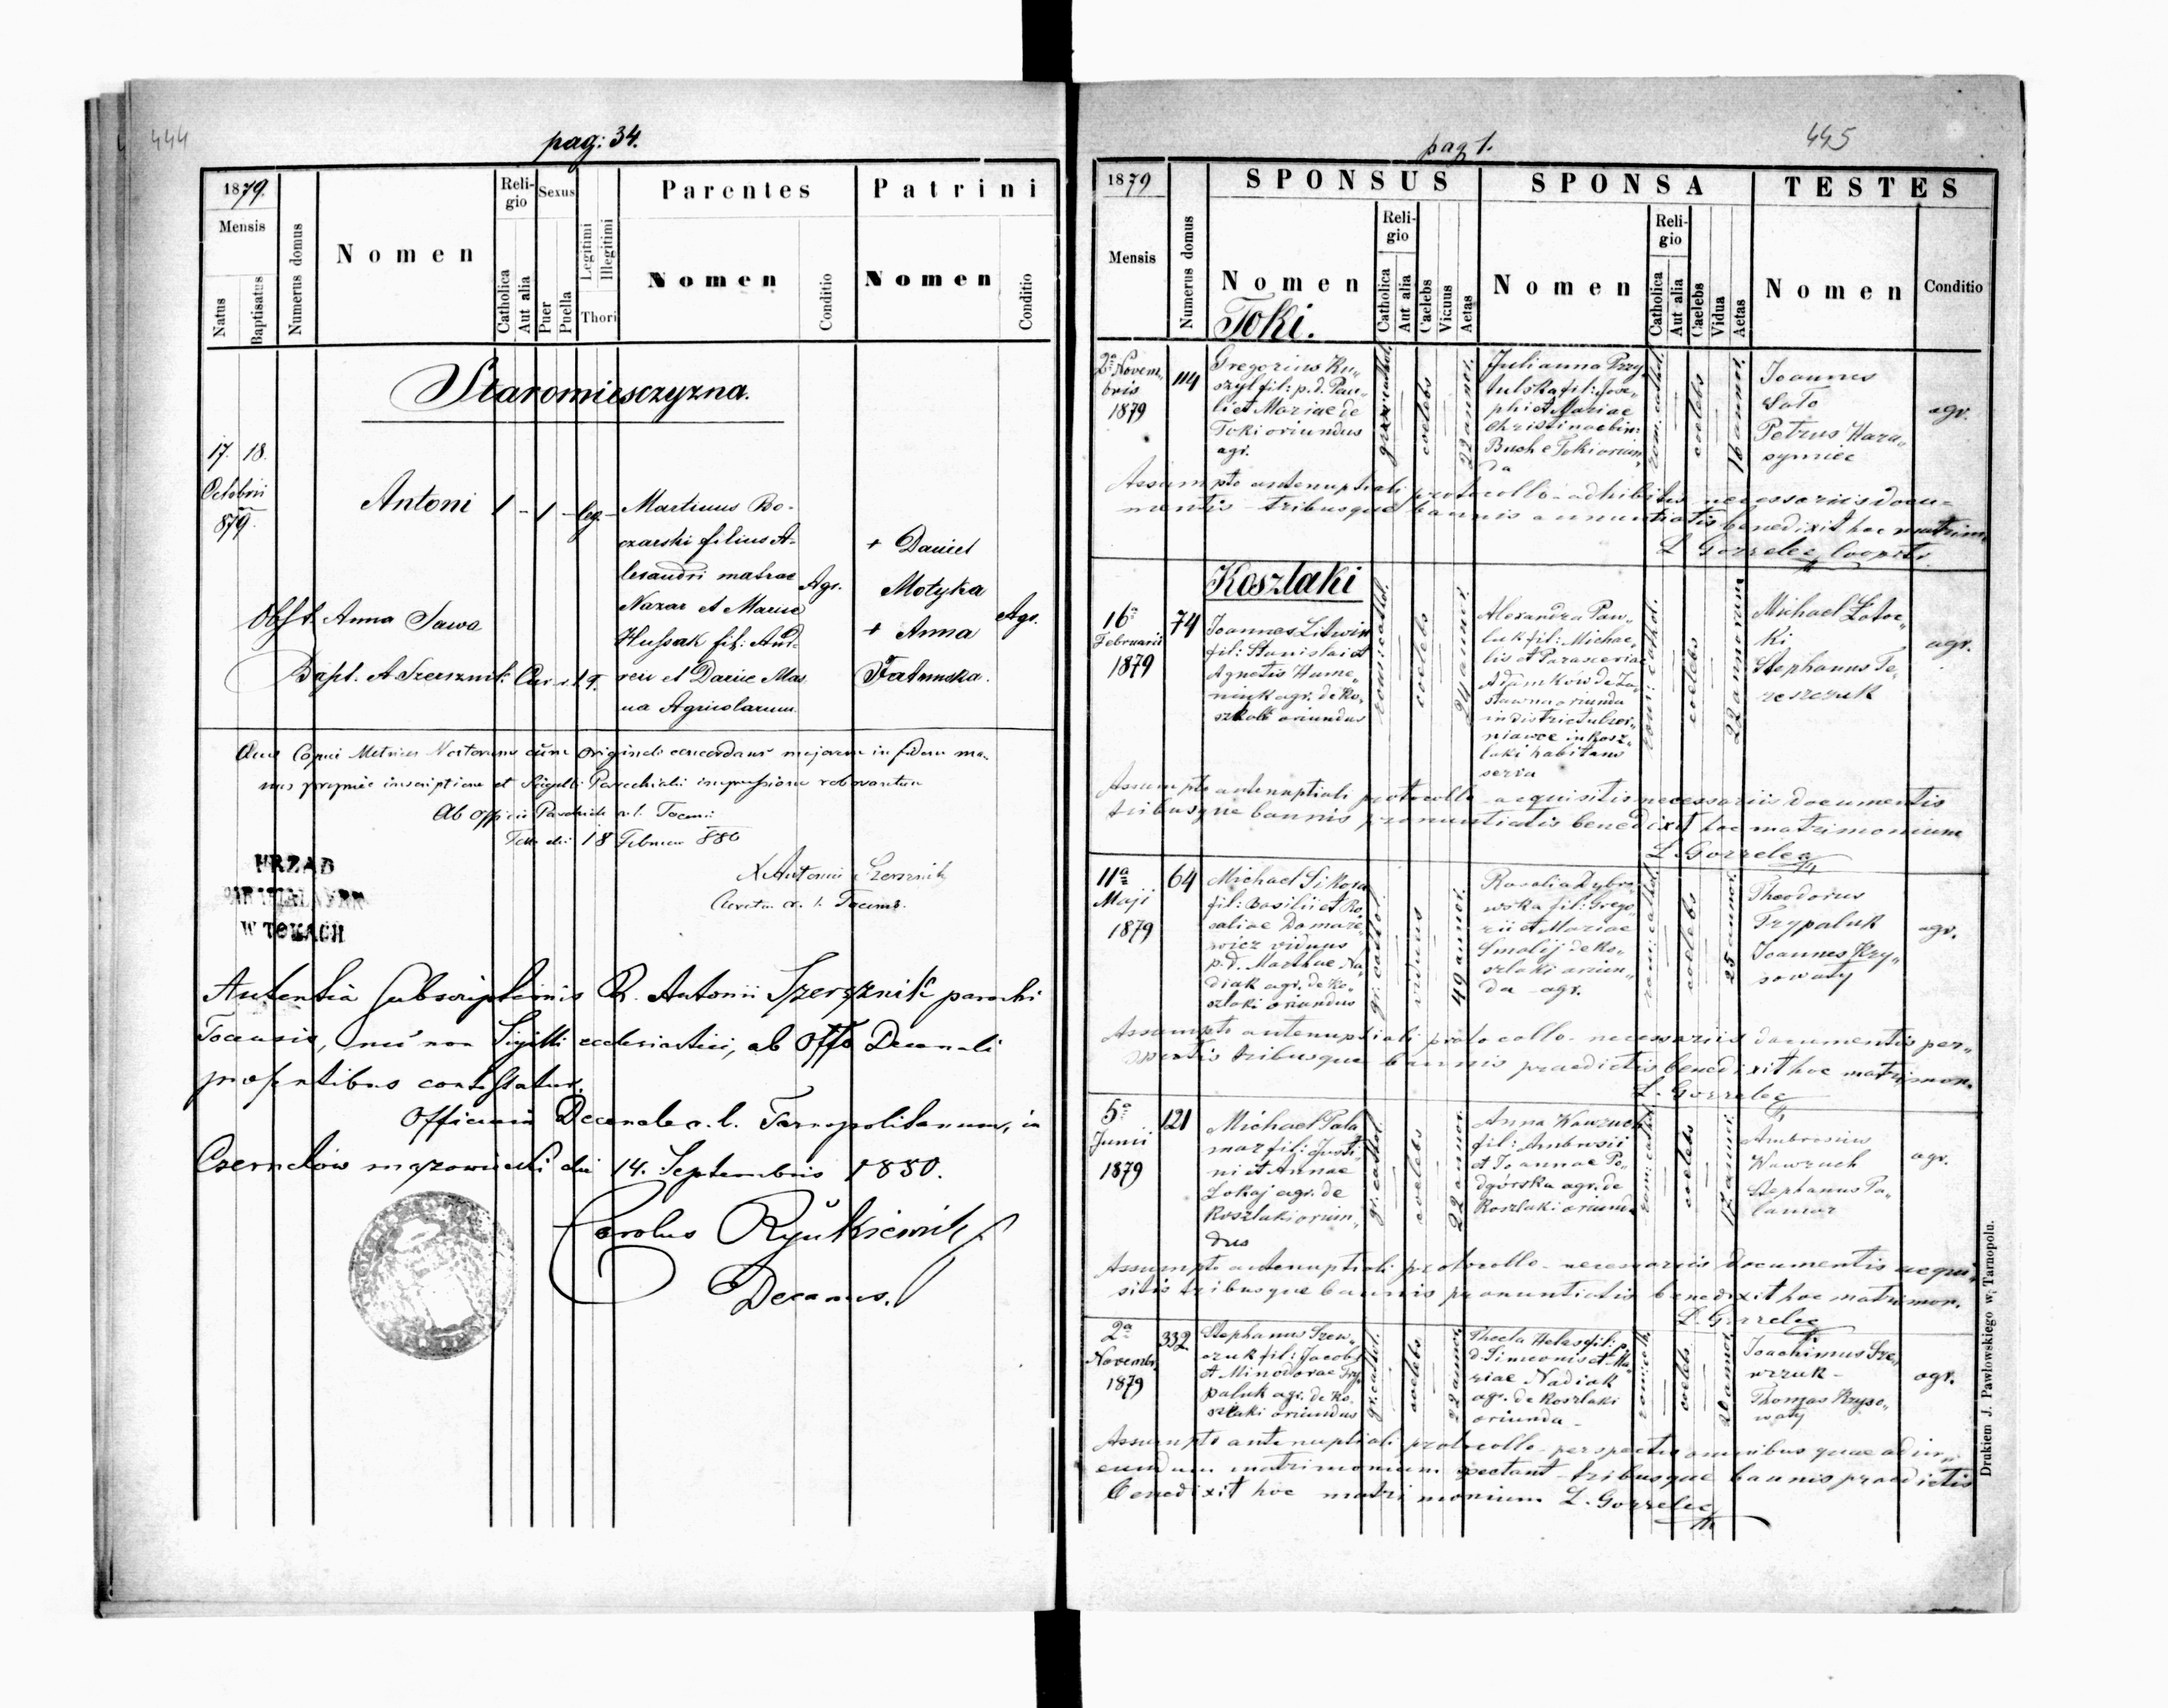 444
pag: 34.
1879.
Mensis
Natus
Baptisatus
Numerus domus
Nomen
Religio
Catholica
Aut alia
Sexus
Puer
Puella
Legitimi
Illegitimi
Thori
Parentes
Nomen
Conditio
Patrini
Nomen
Conditio
Staromiesczyzna.
17. 18.
Octobris
879.
Antoni 1 - 1 - leg.
Martinus Bo-
czarski filius A-
lexandri matrae
Nazar et Mariae
Hussak fil: And-
reii et Dariae Mas
na Agricolarum
Agr.
+ Daniel
Motyka
+ Anna
Agr.
Obst. Anna Sawa
Bapt. A. Szersznik Cur. r. l.
Copiei Metrices Natorum cum originali concordans majorem in fidem ma-
nus propriae inscriptione et Sigilli Parochialis impressione roborantur
Ab officio Parochiali r. l. Tocensi
Toki die 18 Februarii 880
X Antonius Szersznik
Curatus r. l. Tocens.
URZAD
W TOKACH
Autentia subscriptionis R. Antonii Szersznik parochi
Tocensis, nec non Sigilli ecclesiastici, ab Offo Decanali
praesentibus contestatur.
Officium Decanale r. l. Tarnopolitanum, in
Czernelów mazowiecki die 14. Septembris 1880.
Carolus
Decanus.
445
pag 1.
1879
Mensis
Numerus domus
SPONSUS
Nomen
Religio
Catholica
Aut alia
Caelebs
Viduus
Aetas
SPONSA
Nomen
Religio
Catholica
Aut alia
Caelebs
Vidua
Aetas
TESTES
Nomen
Conditio
Toki.
2a Novem-
bris
1879
114
Gregorius Ku-
szyl fil: p. d. Pau-
li et Mariae de
Toki oriundus
agr.
coelebs
22 annor.
Julianna Przy-
tulska fil: Jose-
phi et Mariae
Christinae bin:
Bush e Toki oriun-
da
rom. cathol.
coelebs
16 annor.
Joannes
Sato
Petrus Hara-
symiec
agr.
Assumpto antenuptiali protocollo - adhibitis necessariis docu-
mentis - tribusque bannis annuntiatis benedixit hoc matrim.
L. Gorzelec Coopts.
Koszlaki
16a
Februarii
1879
74
Joannes Litwin
fil: Stanislai et
Agnetis Hume-
niuk agr. de Ko-
szlaki oriundus
rom: cathol.
coelebs
24 annor.
Alexandra Paw-
luk fil: Michae-
lis et Parasceviae
Adamków de Za-
stawna oriunda
in districtu Czer-
niawce in Kosz-
laki habitans
serva
rom: cathol.
coelebs
22 annorum
Michael Zatoc-
ki
Stephanus Te-
reszczuk
agr.
Assumpto antenuptiali protocollo - acquisitis necessariis documentis
tribusque bannis pronuntiatis benedixit hoc matrimonium
L. Gorzelec
11a
Maji
1879
64
Michael Sikora
fil: Basilii et Ro-
saliae Domare-
wicz viduus
p. d. Marthae Na-
diak agr. de Ko-
szlaki oriundus
gr. cathol.
viduus
49 annor.
Rosalia Dybro-
wska fil: Grego-
rii et Mariae
Smalij de Ko-
szlaki oriun-
da - agr.
rom: cathol.
coelebs
25 annor.
Theodorus
Trypaluk
Joannes Kry-
sowaty
agr.
Assumpto antenuptiali protocollo - necessariis documentis per-
spectis tribusque bannis praedictis benedixit hoc matrimon.
L. Gorzelec
5a
Junii
1879
121
Michael Pala-
mar fil: Justi-
ni et Annae
Lokaj agr. de
Koszlaki oriun-
dus
gr. cathol.
coelebs
22 annor.
Anna Wawzuch
fil: Ambrosii
et Joannae Po-
dgórska agr. de
Koszlaki oriunda
rom: cathol.
coelebs
17 annor.
Ambrosius
Wawzuch
Stephanus Pa-
lamar
agr.
Assumpto antenuptiali protocollo - necessariis documentis acqui-
sitis tribusque bannis pronuntiatis benedixit hoc matrimon.
L. Gorzelec
2a
Novembr.
1879
332
Stephanus Szew-
czuk fil: Jacobi
et Minodorae Try-
paluk agr. de Ko-
szlaki oriundus
gr. cathol.
coelebs
22 annor.
Thecla Heles fil: p.
d. Simeonis et Ma-
riae Nadiak
agr. de Koszlaki
oriunda -
rom: cath.
coelebs
20 annor.
Joachimus Sze-
wczuk -
Thomas Kryso-
waty
agr.
Assumpto antenuptiali protocollo - perspectis omnibus quae ad in-
eundum matrimonium spectant - tribusque bannis praedictis
benedixit hoc matrimonium L. Gorzelec
Drukiem J. Pawłowskiego w Tarnopolu.